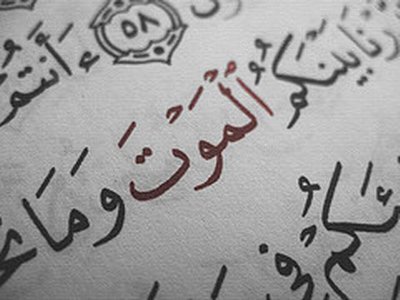 ٥٨ ءَأَنتُمْ
بَيْنَكُمُ ٱلْمَوْتَ وَمَا
فِى